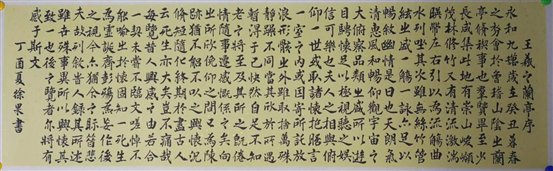 王羲之蘭亭序
永和九年歲在癸丑暮春
之初會於會稽山陰之蘭
亭脩稧事也群賢畢至少
長咸集此地有崇山峻領
茂林脩竹又有清流激湍
暎帶左右引以為流觴曲
水列坐其次雖無絲竹管
絃之盛一觴一詠亦足以
暢敘幽情是日也天朗氣
清惠風和暢仰觀宇宙之
大俯察品類之盛所以遊
目騁懷足以極視聽之娛
信可樂也夫人之相與俯
仰一世或取諸懷抱悟言
一室之內或因寄所託放
浪形骸之外雖趣舍萬殊
靜躁不同當其欣於所遇
暫得於己快然自足不知
老之將至及其所之既倦
情隨事遷感慨係之矣向
之所欣俛仰之間以為陳
跡猶不能不以之興懷況
脩短隨化終期於盡古人
云死生亦大矣豈不痛哉
每覽昔人興感之由若合
一契未嘗不臨文嗟悼不
能喻之於懷固知一死生
為虛誕齊彭殤為妄作後
之視今亦猶今之視昔悲
夫故列敘時人錄其所述
雖世殊事異所以興懷其
致一也後之覽者亦將有
感於斯文
丁酉夏徐果書